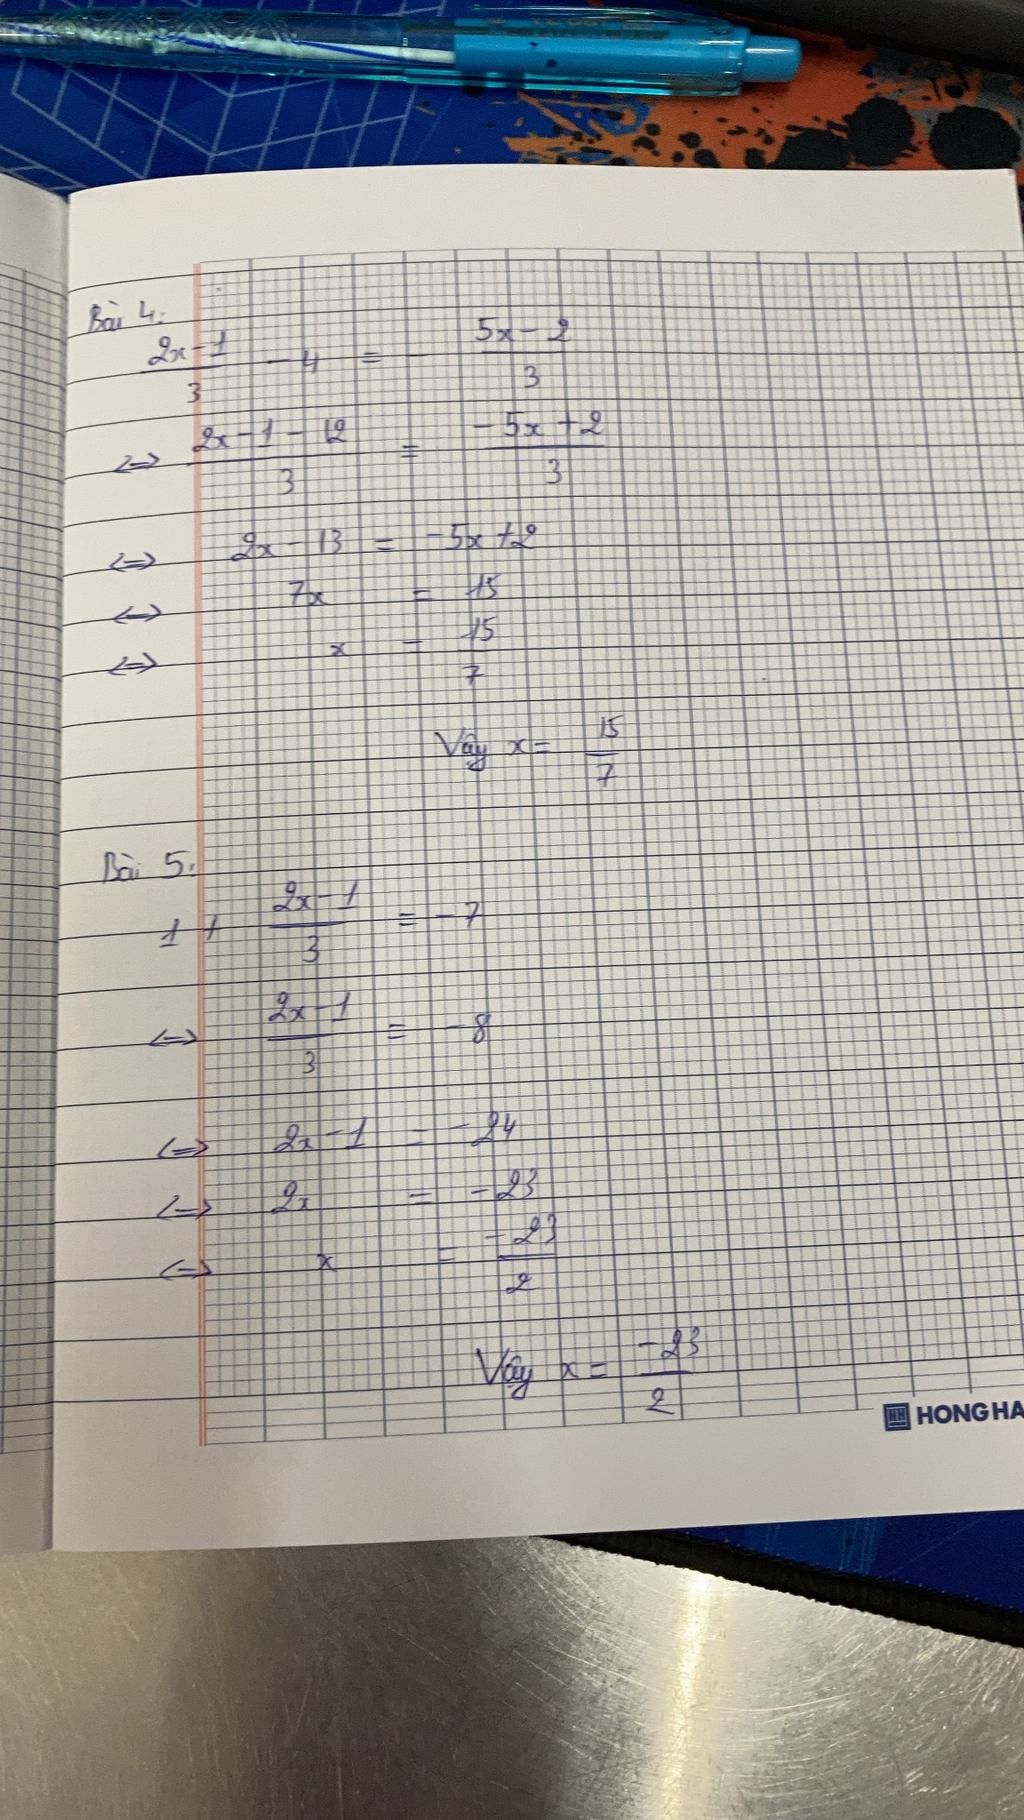 Bài 4:
2x-1/3 - 4 = - 5x-2/3
<=> 2x-1-12/3 = -5x+2/3
<=> 2x-13 = -5x+2
<=> 7x = 15
<=> x = 15/7
Vậy x= 15/7
Bài 5:
1 + 2x-1/3 = -7
<=> 2x-1/3 = -8
<=> 2x-1 = -24
<=> 2x = -23
<=> x = -23/2
Vậy x= -23/2
HH HONG HA